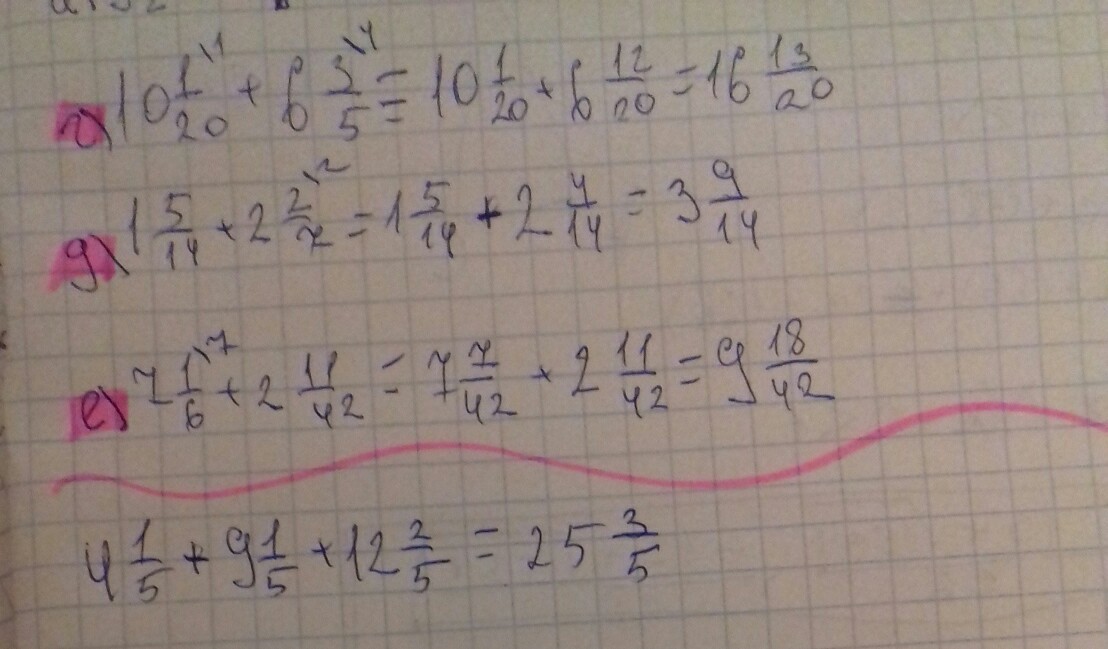 г) 10 1/20 \1 + 6 3/5 \4 = 10 1/20 + 6 12/20 = 16 13/20
д) 1 5/14 + 2 2/7 \2 = 1 5/14 + 2 4/14 = 3 9/14
е) 7 1/6 \7 + 2 11/42 = 7 7/42 + 2 11/42 = 9 18/42
4 1/5 + 9 1/5 + 12 2/5 = 25 3/5